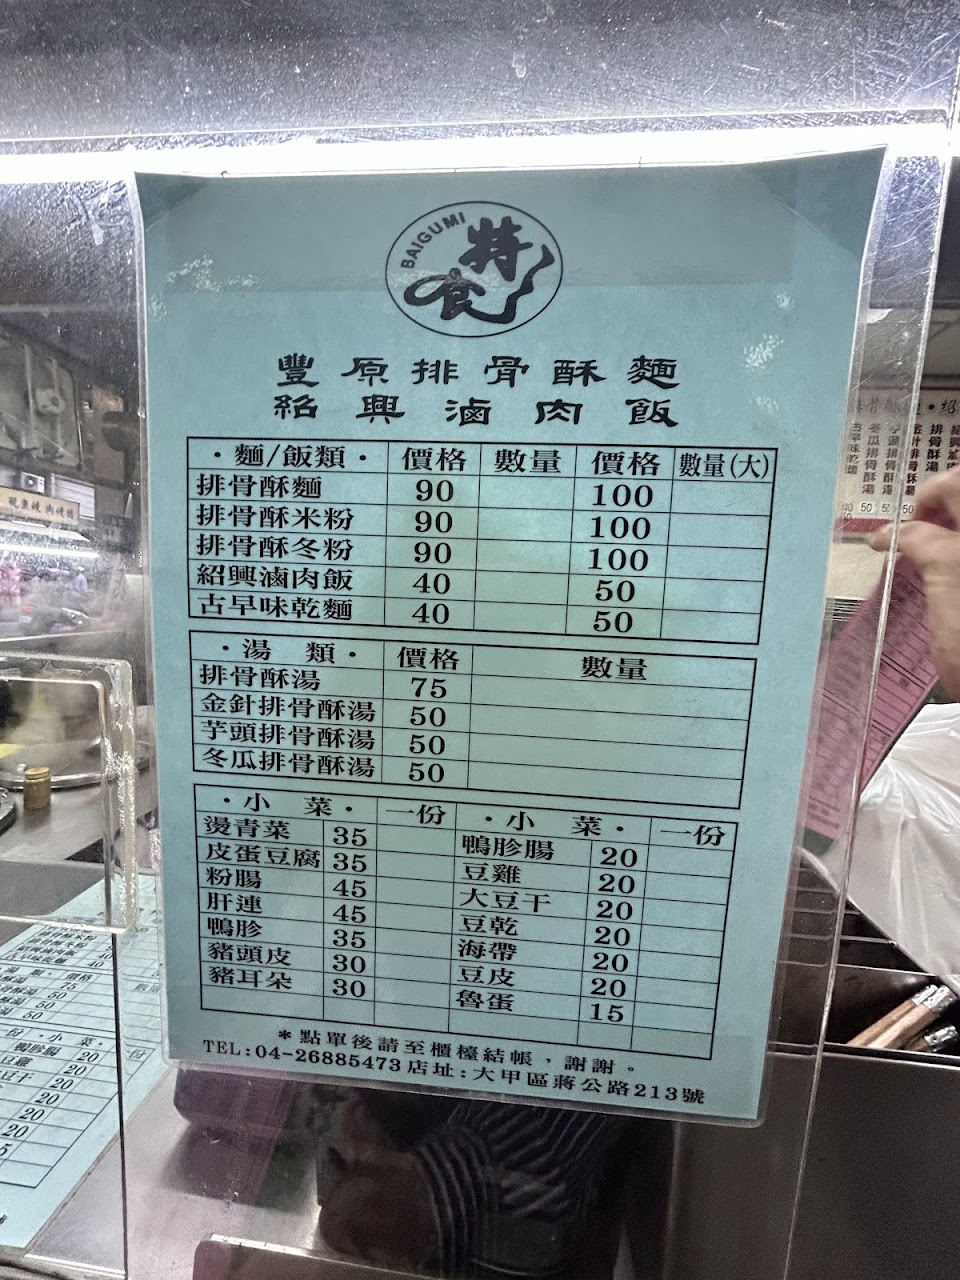 BAIGUMI
特食
豐原排骨酥麵
紹興滷肉飯
・麵/飯類・ 價格 數量 價格 數量(大)
排骨酥麵 90 100
排骨酥米粉 90 100
排骨酥冬粉 90 100
紹興滷肉飯 40 50
古早味乾麵 40 50
・湯 類・ 價格 數量
排骨酥湯 75
金針排骨酥湯 50
芋頭排骨酥湯 50
冬瓜排骨酥湯 50
・小 菜・ 一份 ・小 菜・ 一份
燙青菜 35 鴨胗腸 20
皮蛋豆腐 35 豆雞 20
粉腸 45 大豆干 20
肝連 45 豆乾 20
鴨胗 35 海帶 20
豬頭皮 30 豆皮 20
豬耳朵 30 魯蛋 15
*點單後請至櫃檯結帳，謝謝。
TEL:04-26885473店址:大甲區蔣公路213號